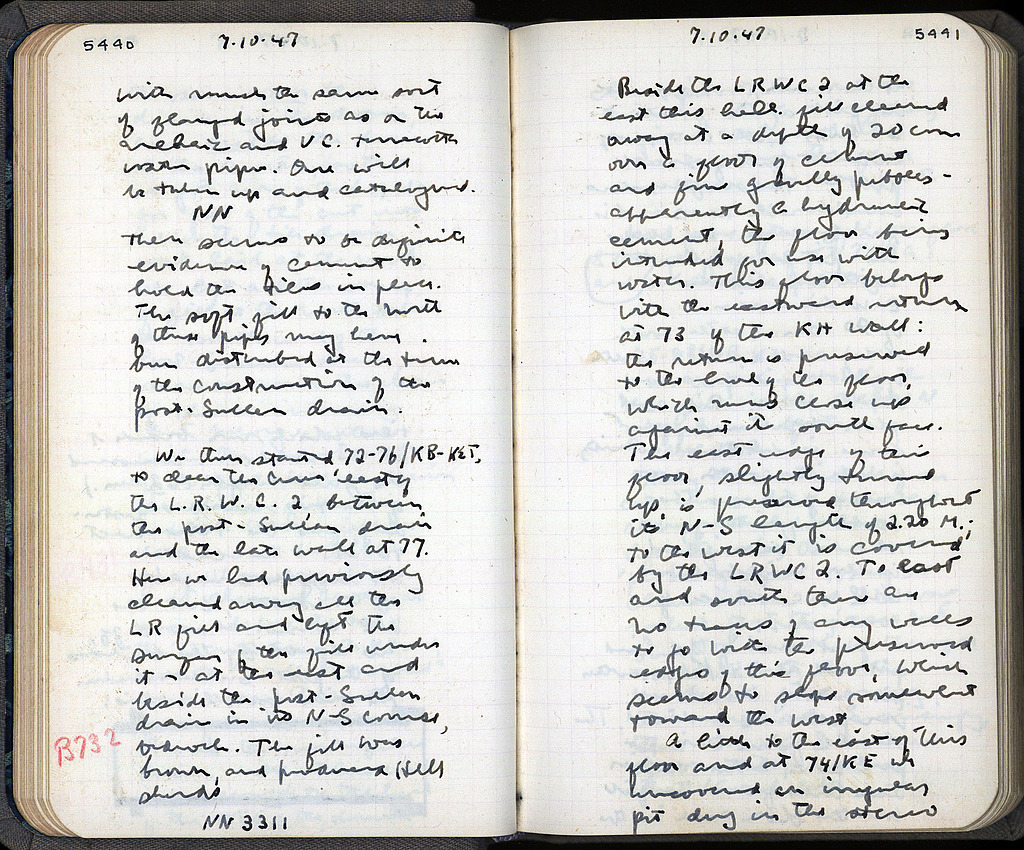 5440
7.10.47
with much the same sort
of flanged joints as on the
archaic and V C. terracotta
water pipes. One will
be taken up and catalogued.
NN
There seems to be definite
evidence of cement to
hold the tiles in place.
The soft fill to the north
of these pipes may have
been disturbed at the time
of the construction of the
post-Sullan drain.
We then started 72-76/KB-KET,
to clear the area east of
the L.R.W.C. 2 between
the post-Sullan drain
and the late wall at 77.
Here we had previously
cleared away all the
LR fill and left the
surface of the fill under
it - at the east and
beside the post-Sullan
drain in its N-S course,
bedrock. The fill was
brown, and produced Hell
sherds
B732
NN 3311
7.10.47
5441
Beside the LRWC 2 at the
east this hell. fill cleared
away at a depth of 20 cm
over a floor of cement
and fine gravelly pebbles -
apparently a hydraulic
cement, the floor being
intended for use with
water. This floor belongs
with the eastward return
at 73 of the KH wall:
the return is preserved
to the level of the floor,
which runs close up
against its south face.
The east edge of this
floor, slightly turned
up, is preserved throughout
its N-S length of 2.20 M.;
to the west it is covered
by the LRWC 2. To east
and south there are
no traces of any walls
to go with the preserved
edges of this floor, which
seems to slope somewhat
toward the west
A little to the east of this
floor and at 74/KE we
uncovered an irregular
pit dug in the stereo